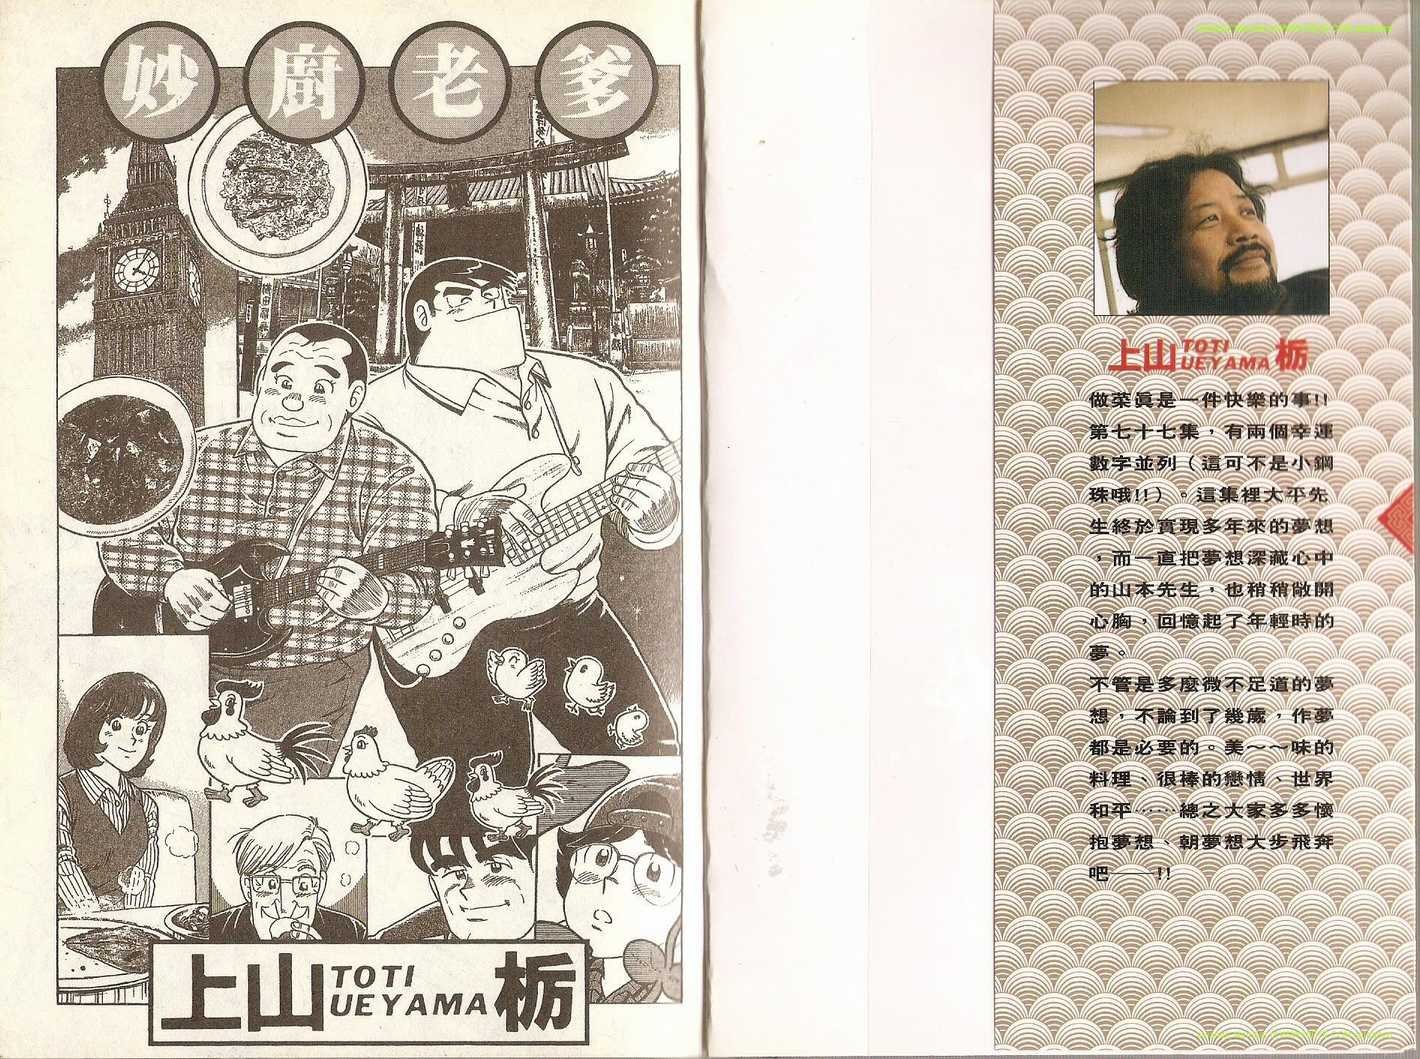 妙廚老爹
上山 TOTI UEYAMA 栃
上山 TOTI UEYAMA 栃
做菜眞是一件快樂的事!!
第七十七集，有兩個幸運
數字並列（這可不是小鋼
珠哦!!）。這集裡大平先
生終於實現多年來的夢想
，而一直把夢想深藏心中
的山本先生，也稍稍敞開
心胸，回憶起了年輕時的
夢。
不管是多麼微不足道的夢
想，不論到了幾歲，作夢
都是必要的。美～～味的
料理、很棒的戀情、世界
和平……總之大家多多懷
抱夢想、朝夢想大步飛奔
吧——!!